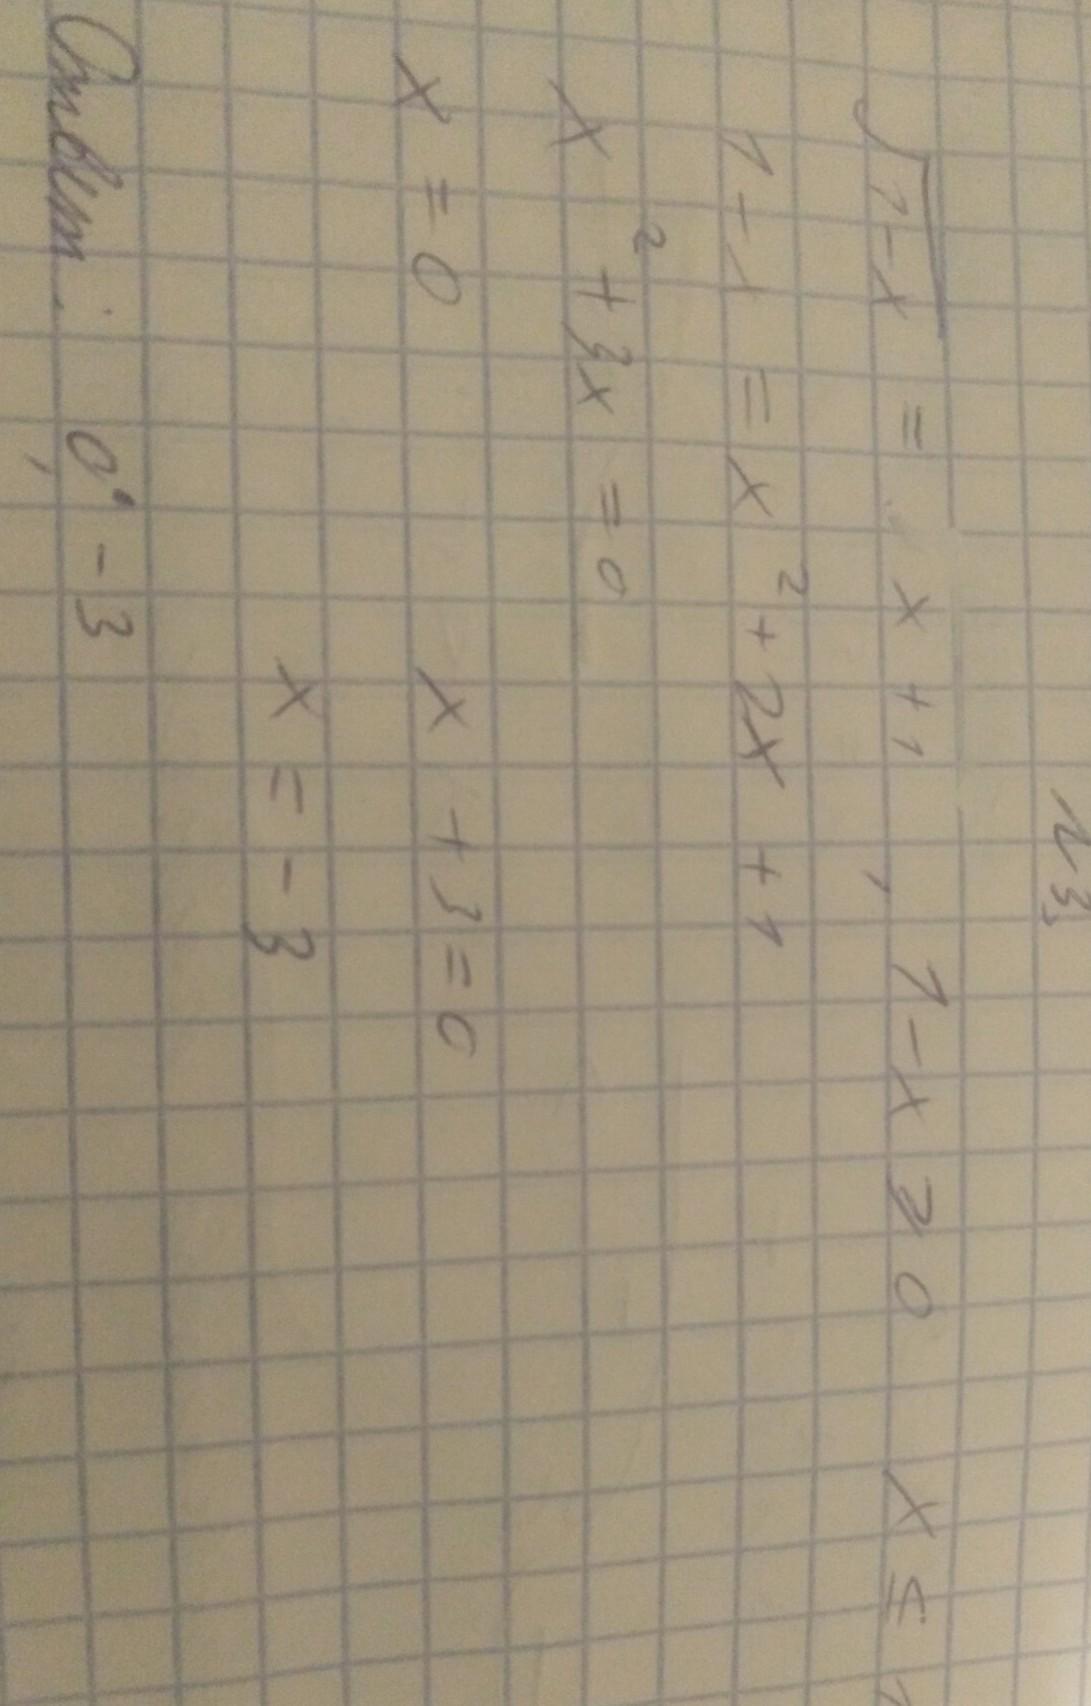 №3
√1-x = x+1, 1-x ≥ 0 x ≤ 1
1-x = x² + 2x + 1
x² + 3x = 0
x = 0 x + 3 = 0
x = -3
Ответ: 0; -3